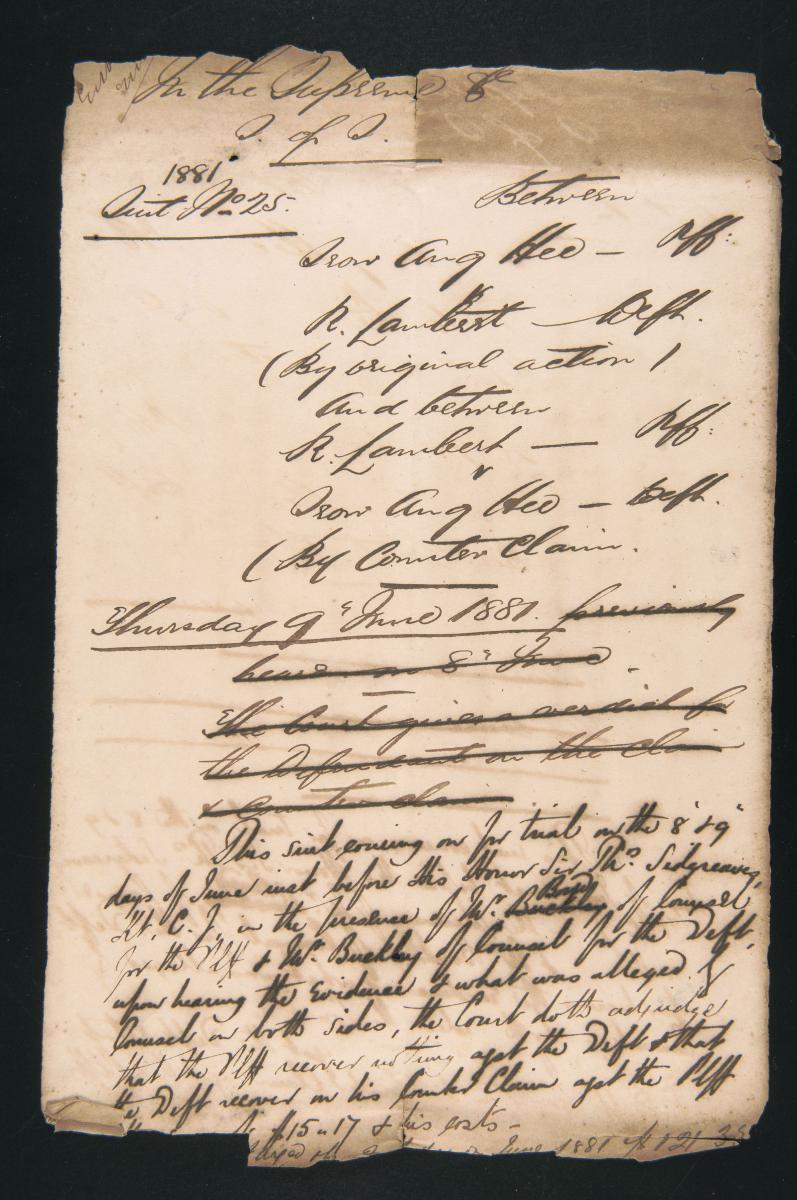 In the Supreme &c
S. of S.
1881
Suit No 25.
Between
Trow Ang Hee — Plff:
v
R. Lambert — Deft.
(By original action)
and between
R. Lambert — Plff:
v
Trow Ang Hee — Deft.
(By Counter Claim.
Thursday 9th June 1881. previously
heard on 8th June.
The Court gives a verdict for
the Defendant on the Claim
& Counter claim
This suit coming on for trial on the 8th & 9th
days of June inst before His Honor Sir Thos. Sidgreaves,
Kt, C. J., in the presence of Mr. Buckley Bond of Counsel
for the Plff & Mr. Buckley of Counsel for the Deft,
upon hearing the Evidence & what was alleged by
Counsel on both sides, the Court doth adjudge
that the Plff recover nothing agst the Deft & that
the Deft recover on his Counter Claim agst the Plff
$15 – 17 & his costs –
June 1881